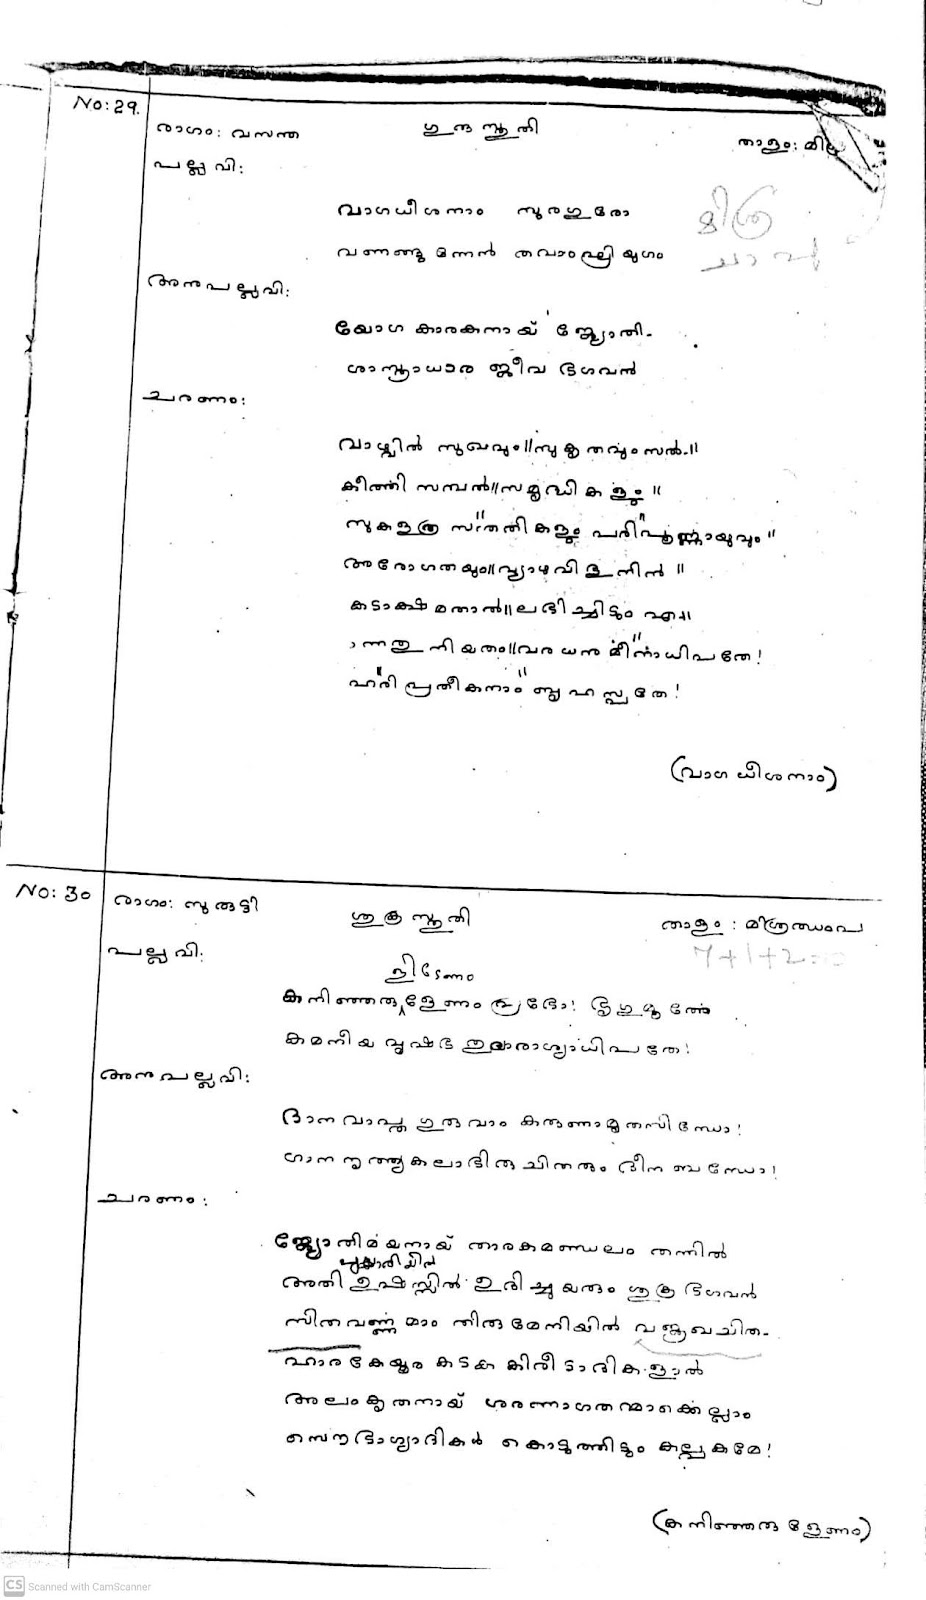 No: 29.
രാഗം: വസന്ത
ഗുരുസ്തുതി
താളം: മിശ്ര
പല്ലവി:
വാഗധീശനാം സുരഗുരോ
മിശ്ര
വണങ്ങുമന്നൻ തവാംഘ്രിയുഗം
ചാപ്പു
അനുപല്ലവി:
യോഗകാരകനായ് ജ്യോതി-
ശാസ്ത്രാധാര ജീവ ഭഗവൻ
ചരണം:
വാഴ്വിൽ സുഖവും॥സുകൃതവും സൽ-॥
കീർത്തി സമ്പൽ॥സമൃദ്ധികളും॥
സുകളത്ര സന്തതികളും പരിപൂർണ്ണായുവും॥
അരോഗതയും॥വ്യാഴവിഭുനിൻ॥
കടാക്ഷമതാൽ॥ലഭിച്ചിടും എ॥
ന്നതു നിയതം॥വരധനുമീനാധിപതേ!
ഹരി പ്രതീകനാം ബൃഹസ്പതേ!
(വാഗധീശനാം)
No: 30
രാഗം: സുരുട്ടി
ശുക്രസ്തുതി
താളം: മിശ്രഝംപ
7+1+2=
പല്ലവി:
ടേണം
കനിഞ്ഞരുളേണം പ്രഭോ! ഭൃഗുസൂനോ
കമനീയ വൃഷഭ തുലാരാശ്യാധിപതേ!
അനുപല്ലവി:
ദാനവാപ്ത ഗുരുവാം കരുണാമൃതസിന്ധോ!
ഗാനനൃത്ത്യകലാഭിരുചിതരും ദീനബന്ധോ!
ചരണം:
ജ്യോതിമയനായ് താരകമണ്ഡലം തന്നിൽ
അതി ഉഷസ്സിൽ ഉദിച്ചുയരും ശുക്ര ഭഗവൻ
സിതവർണ്ണമാം തിരുമേനിയിൽ വജ്രഖചിത-
ഹാരകേയൂര കടക കിരീടാദികളാൽ
അലംകൃതനായ് ശരണാഗതന്മാർക്കെല്ലാം
സൌഭാഗ്യാദികൾ കൊടുത്തിടും കല്പകമേ!
(കനിഞ്ഞരുളേണം)
CS Scanned with CamScanner